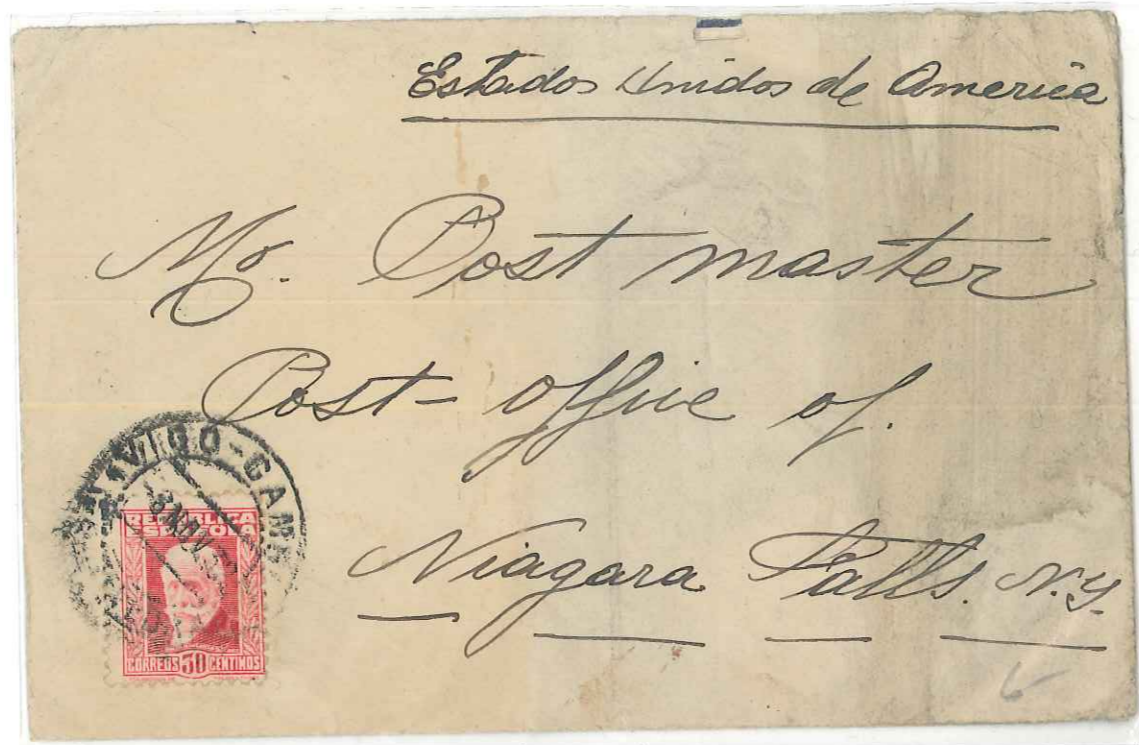 Estados Unidos de America
Mr. Post master
Post-office of.
Niagara Falls. N.Y.
VIGO-CAM
8 NOV
REPUBLICA
ESPAÑOLA
CORREOS 30 CENTIMOS